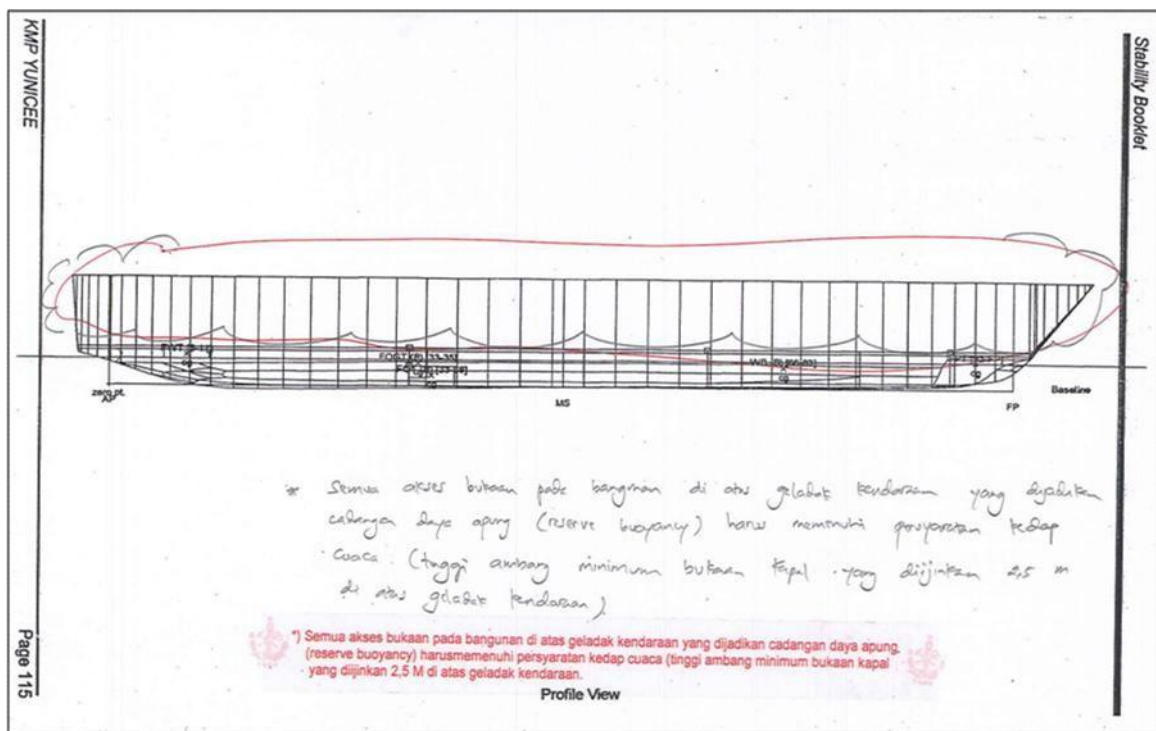 Stability Booklet
KMP YUNICEE
zero pt.
AP
MS
FP
Baseline
* Semua akses bukaan pada bangunan di atas geladak kendaraan yang dijadikan
cadangan daya apung (reserve buoyancy) harus memenuhi persyaratan kedap
cuaca (tinggi ambang minimum bukaan kapal yang diijinkan 2,5 m
di atas geladak kendaraan)
*) Semua akses bukaan pada bangunan di atas geladak kendaraan yang dijadikan cadangan daya apung
(reserve buoyancy) harusmemenuhi persyaratan kedap cuaca (tinggi ambang minimum bukaan kapal
yang diijinkan 2,5 M di atas geladak kendaraan.
Profile View
Page 115